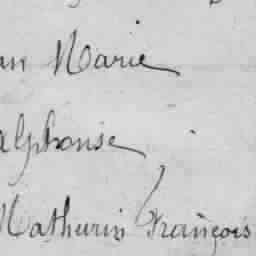 an Marie
alphonse
Mathurin François